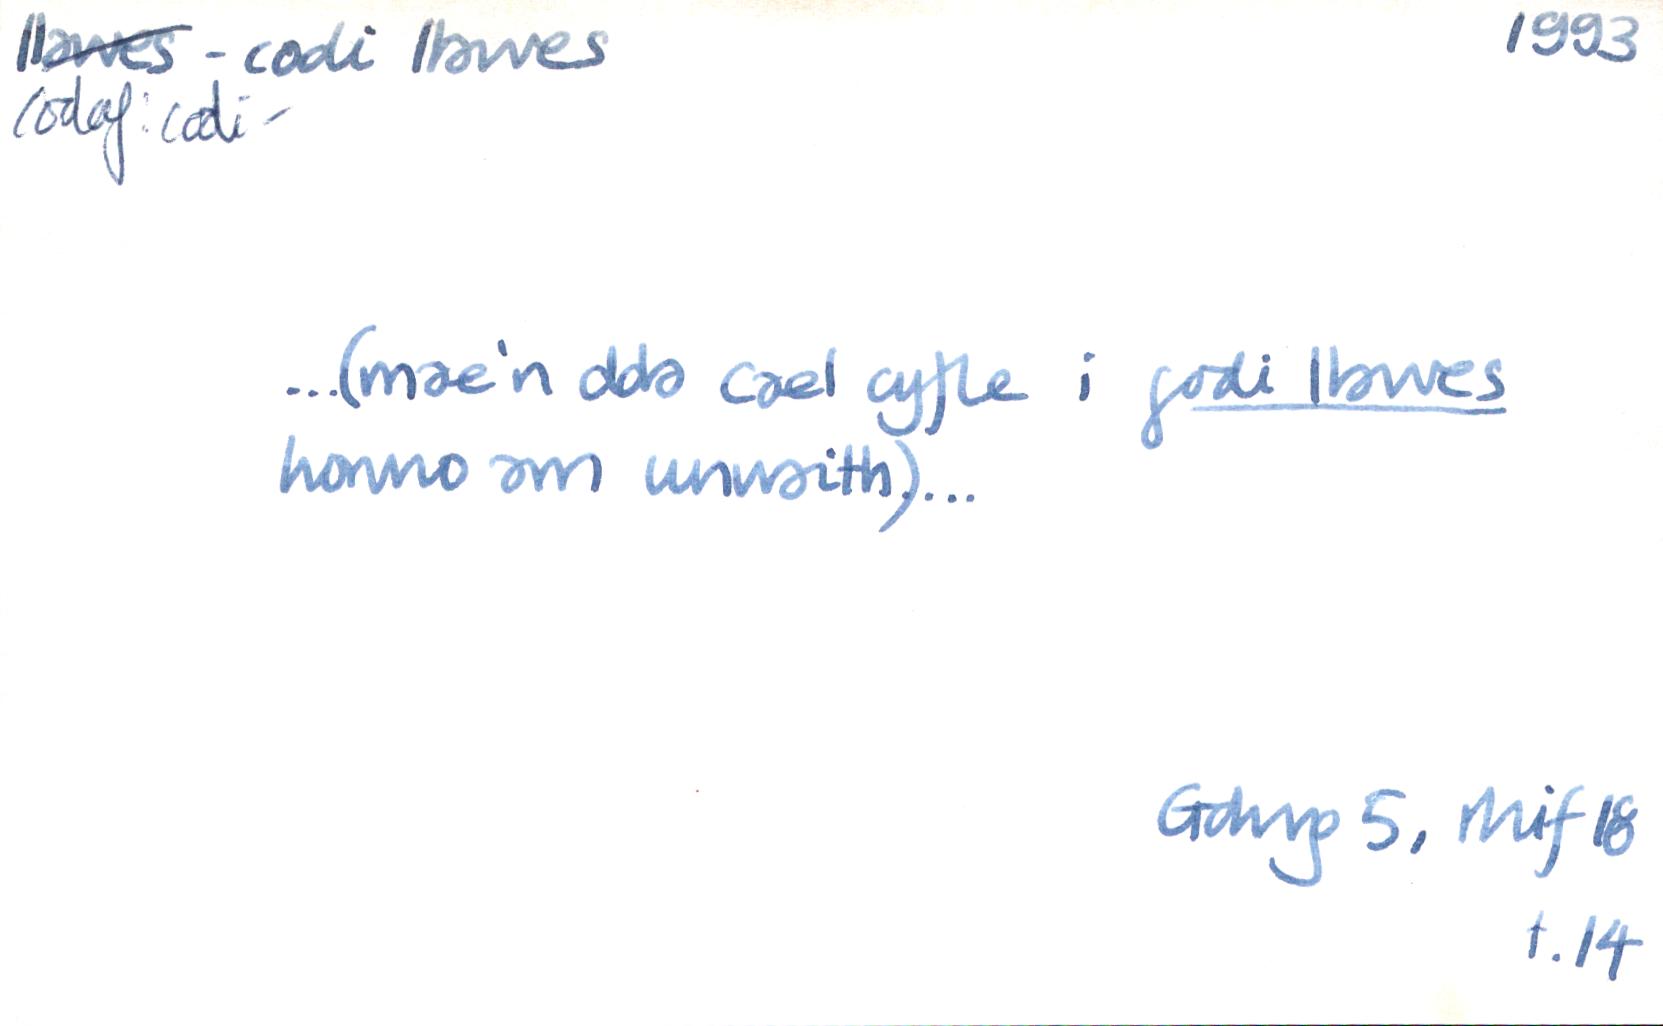 llawes - codi llawes
1993
codaf: codi -
...(mae'n dda cael cyfle i godi llawes
honno am unwaith)....
Golwg 5, rhif 18
t. 14